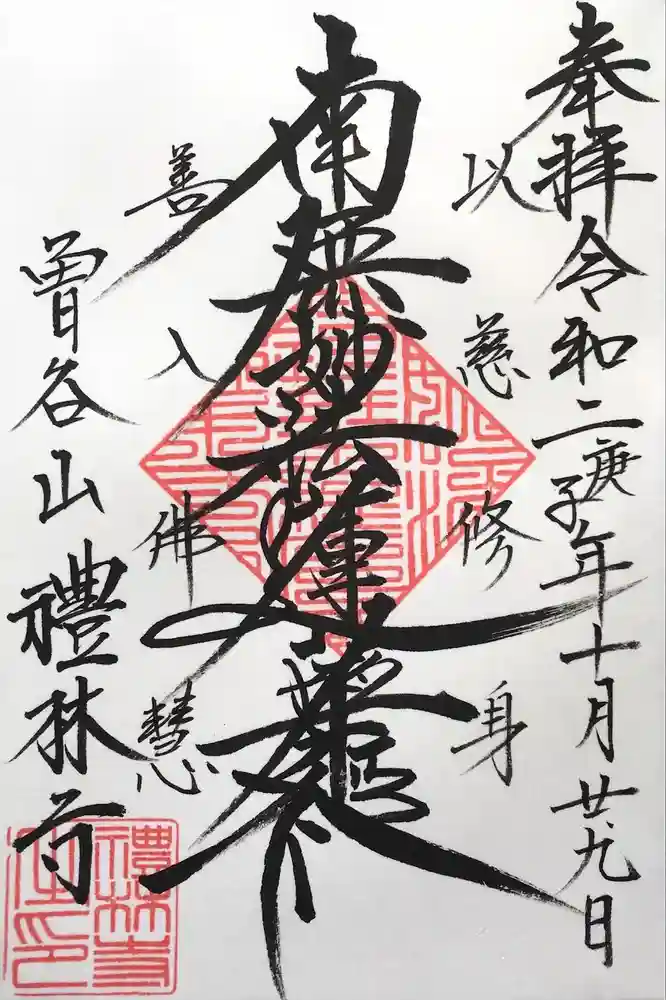 奉拝 令和二庚子年十月廿九日
以慈修身
南無妙法蓮華經
善入佛慧
曽谷山 禮林寺
禮林寺